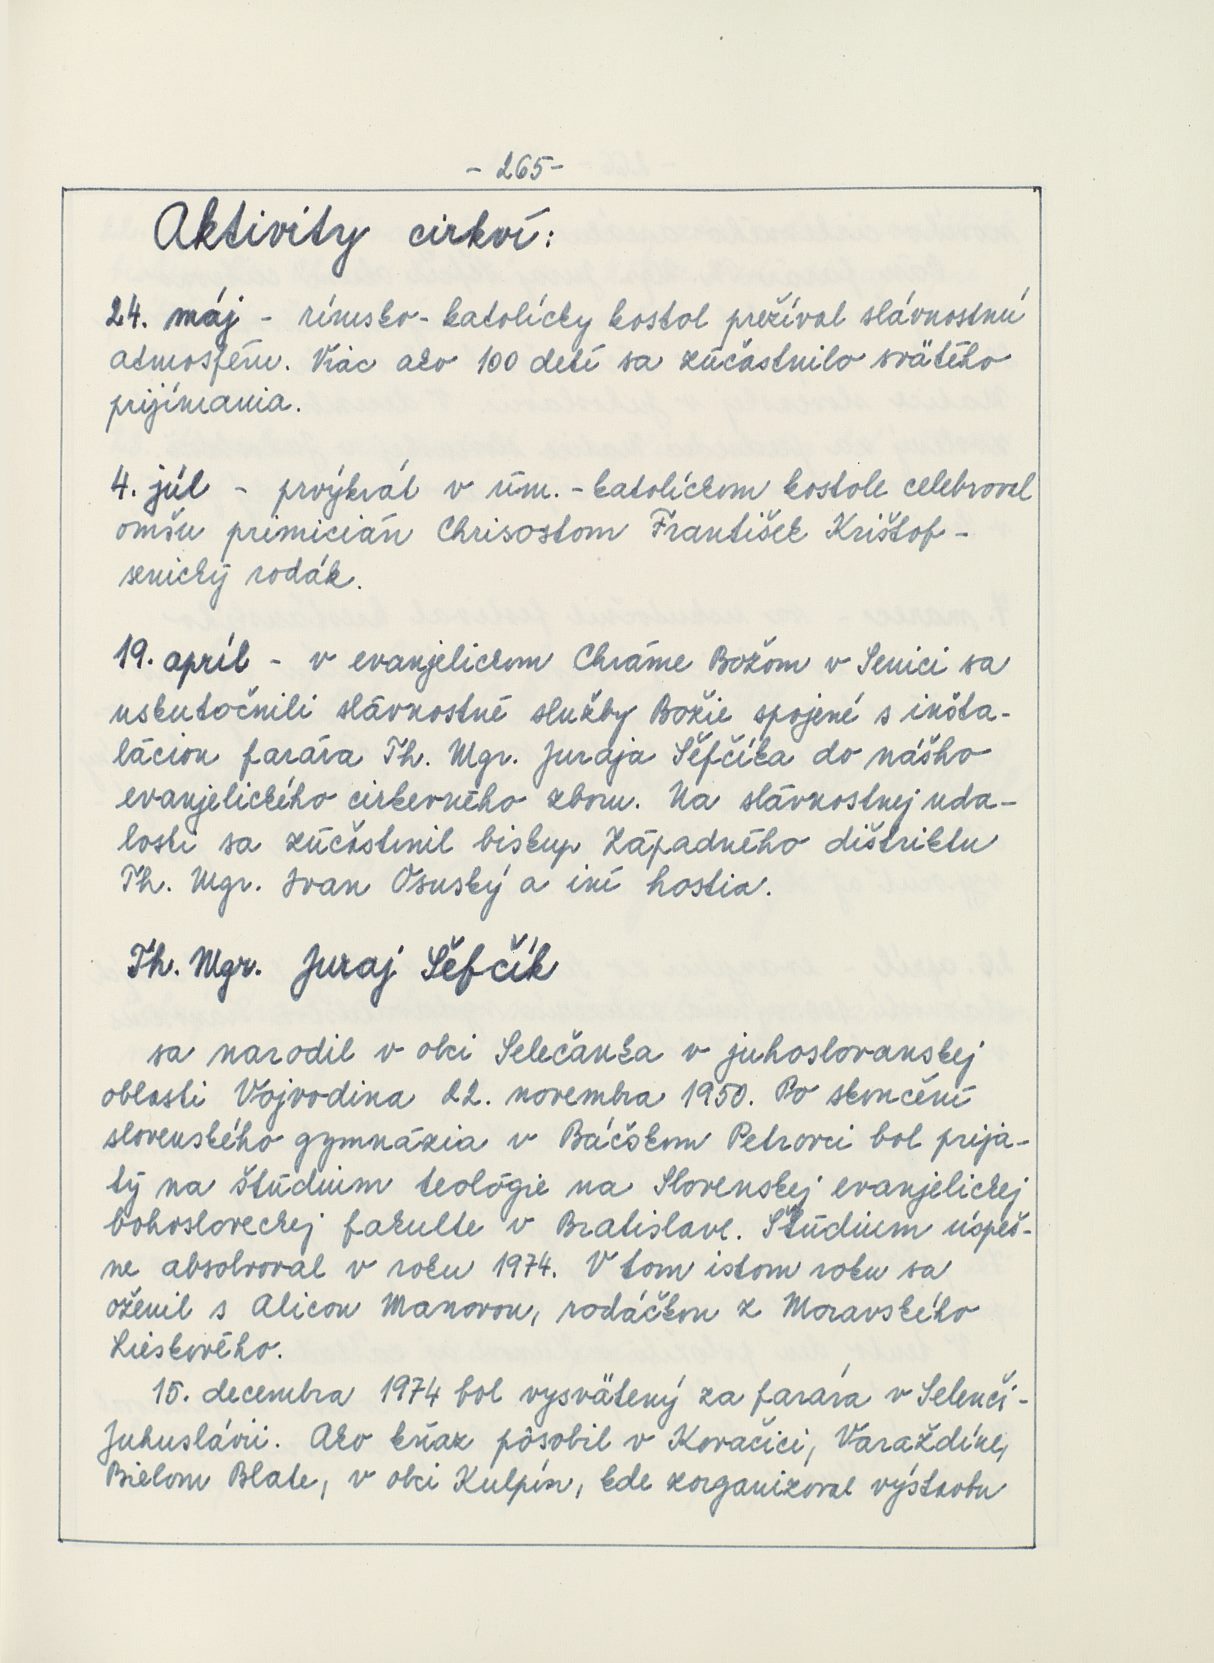 - 265-
Aktivity cirkví:
24. máj - rímsko-katolícky kostol prežíval slávnostnú
atmosféru. Viac ako 100 detí sa zúčastnilo svätého
prijímania.
4. júl - prvýkrát v rím.-katolíckom kostole celebroval
omšu primicián Chrisostom František Krištof -
senický rodák.
19. apríl - v evanjelickom Chráme Božom v Senici sa
uskutočnili slávnostné služby Božie spojené s inšta-
láciou farára Th. Mgr. Juraja Šefčíka do nášho
evanjelického cirkevného zboru. Na slávnostnej uda-
losti sa zúčastnil biskup Západného dištriktu
Th. Mgr. Ivan Osuský a iní hostia.
Th. Mgr. Juraj Šefčík
sa narodil v obci Selečánka v juhoslovanskej
oblasti Vojvodina 22. novembra 1950. Po skončení
slovenského gymnázia v Báčskom Petrovci bol prija-
tý na štúdium teológie na Slovenskej evanjelickej
bohosloveckej fakulte v Bratislave. Štúdium úspeš-
ne absolvoval v roku 1974. V tom istom roku sa
oženil s Alicou Manovou, rodáčkou z Moravského
Lieskového.
15. decembra 1974 bol vysvätený za farára v Selenči-
Juhuslávii. Ako kňaz pôsobil v Kovačici, Varaždíne,
Bielom Blate, v obci Kulpín, kde zorganizoval výstavbu